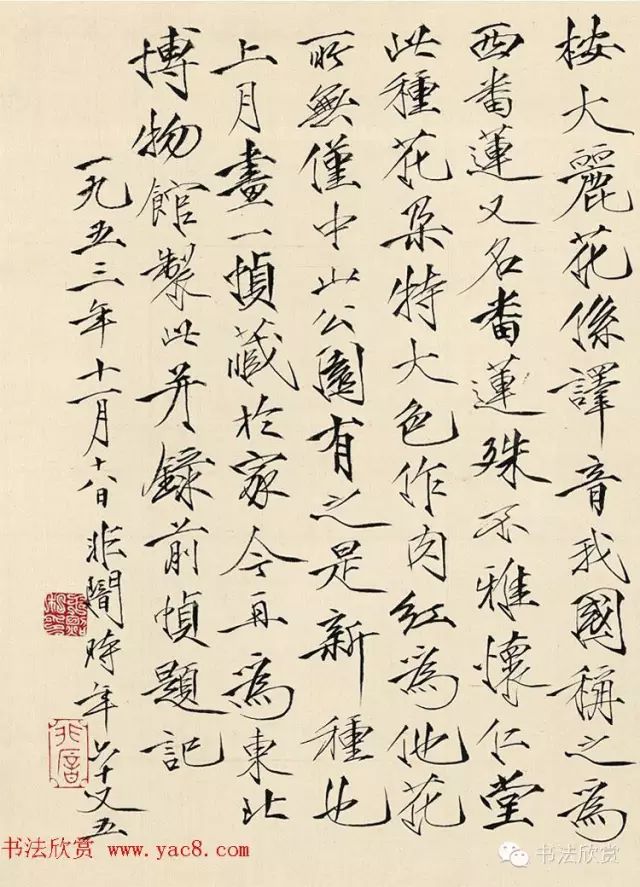 按大麗花係譯音我國稱之為
西番蓮又名番蓮殊不雅懷仁堂
此種花朵特大色作肉紅為他花
所無僅中山公園有之是新種也
上月畫一幀藏於家今再為東北
博物館製此并錄前幀題記
一九五三年十一月十八日非闇時年六十又五
非闇
书法欣赏 www.yac8.com
书法欣赏